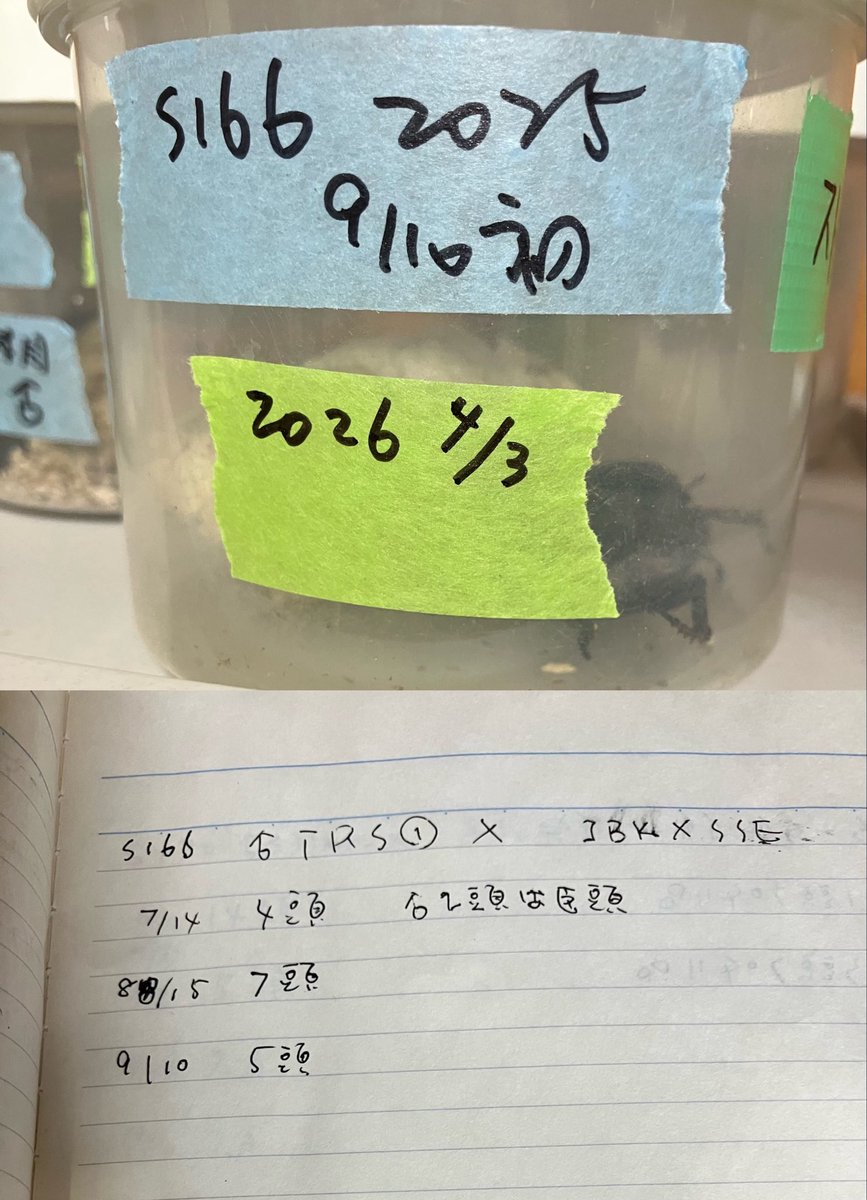 S166 2025
9/10初
2026 4/3
S166 ♂TRS① × IBK×SSE
7/14 4頭 ♂2頭は虫頭
8/15 7頭
9/10 5頭